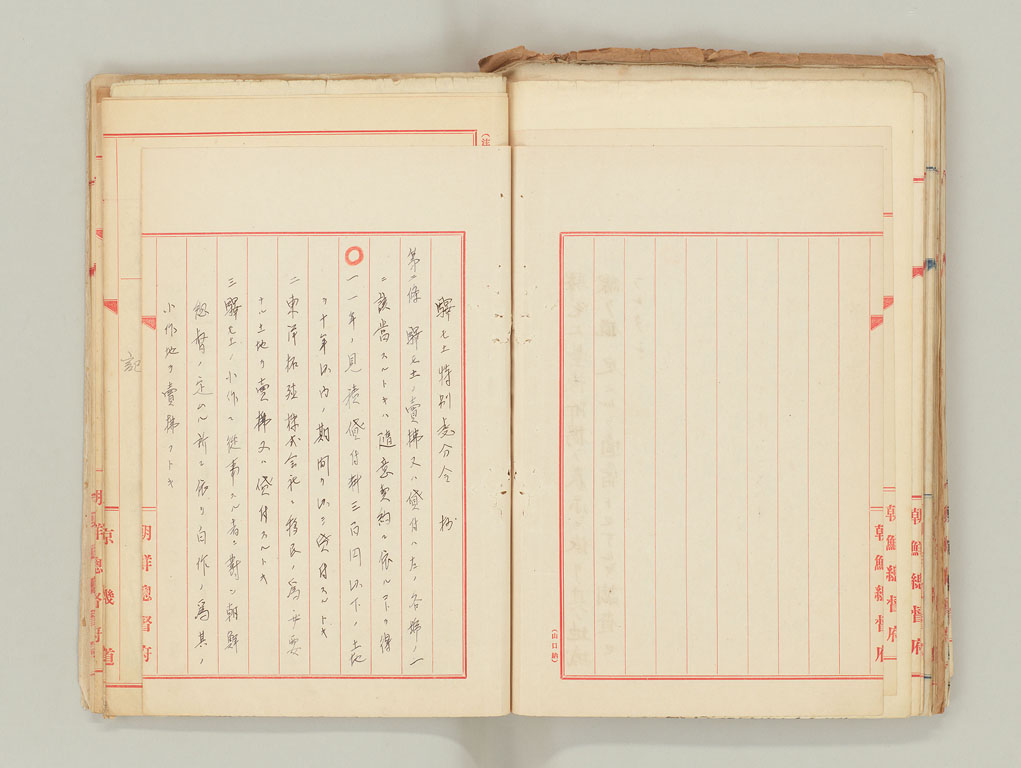 驛屯土特別處分令 抄
第一條 驛屯土ノ賣拂又ハ貸付ハ左ノ各號ノ一
ニ該當スルトキハ隨意契約ニ依ルコトヲ得
一 一年ノ見積貸付料三百円以下ノ土地
ヲ十年以内ノ期間ヲ以テ貸付スルトキ
二 東洋拓殖株式会社ニ移民ノ為必要
ナル土地ヲ賣拂又ハ貸付スルトキ
三 驛屯土ノ小作ニ從事スル者ニ對シ朝鮮
総督ノ定ムル所ニ依リ自作ノ為其ノ
小作地ヲ賣拂フトキ
記
朝鮮總督府
京畿道
朝鮮總督府
(山口納)
朝鮮總督府
朝鮮總督府
朝鮮總督府